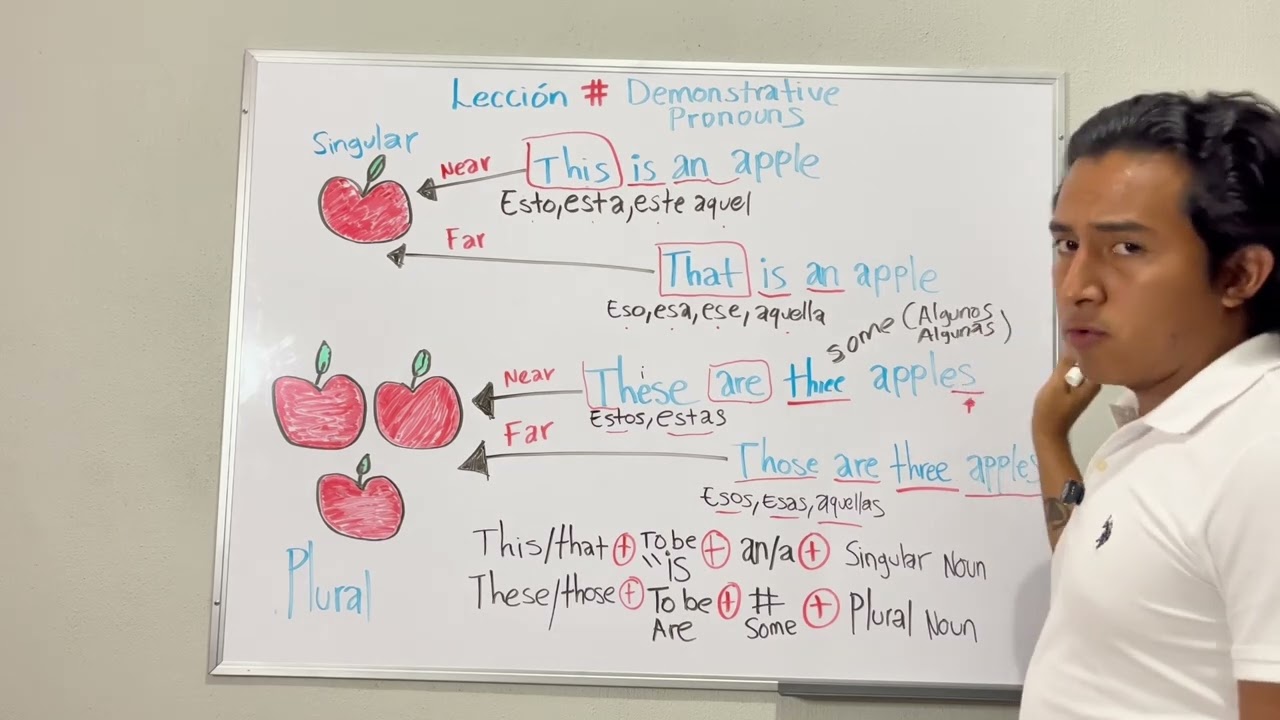 Lección # Demonstrative
Pronouns
Singular
Near This is an apple
Esto, esta, este aquel
Far
That is an apple
Eso, esa, ese, aquella
some (Algunos
Algunas)
Near These are three apples
Estos, estas
Far
Those are three apples
Esos, Esas, aquellas
This/that + To be + an/a + Singular Noun
"is
These/those + To be + # + Plural Noun
Are Some
Plural